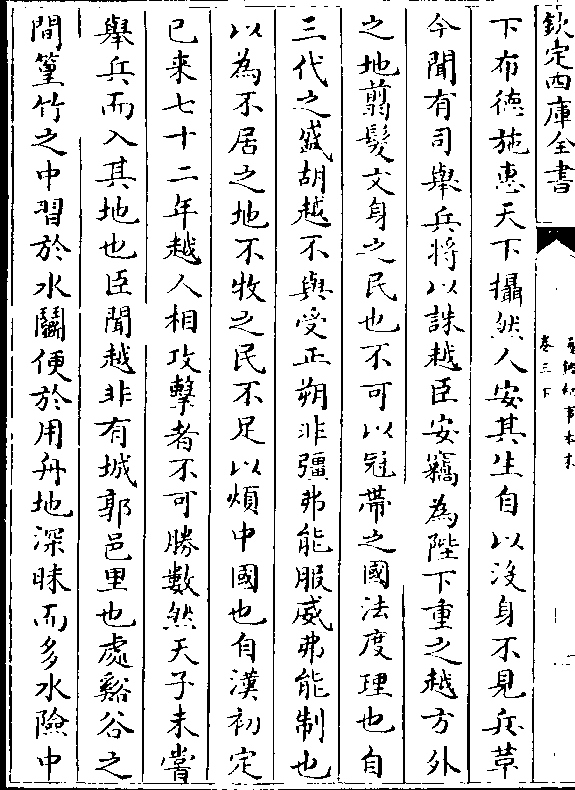 欽定四庫全書
通鑑紀事本末
卷三下
下布德施惠天下攝然人安其生自以沒身不見兵革
今聞有司舉兵將以誅越臣安竊為陛下重之越方外
之地翦髮文身之民也不可以冠帶之國法度理也自
三代之盛胡越不與受正朔非彊弗能服威弗能制也
以為不居之地不牧之民不足以煩中國也自漢初定
已来七十二年越人相攻擊者不可勝數然天子未嘗
舉兵而入其地也臣聞越非有城郭邑里也處谿谷之
間篁竹之中習於水鬭便於用舟地深昧而多水險中